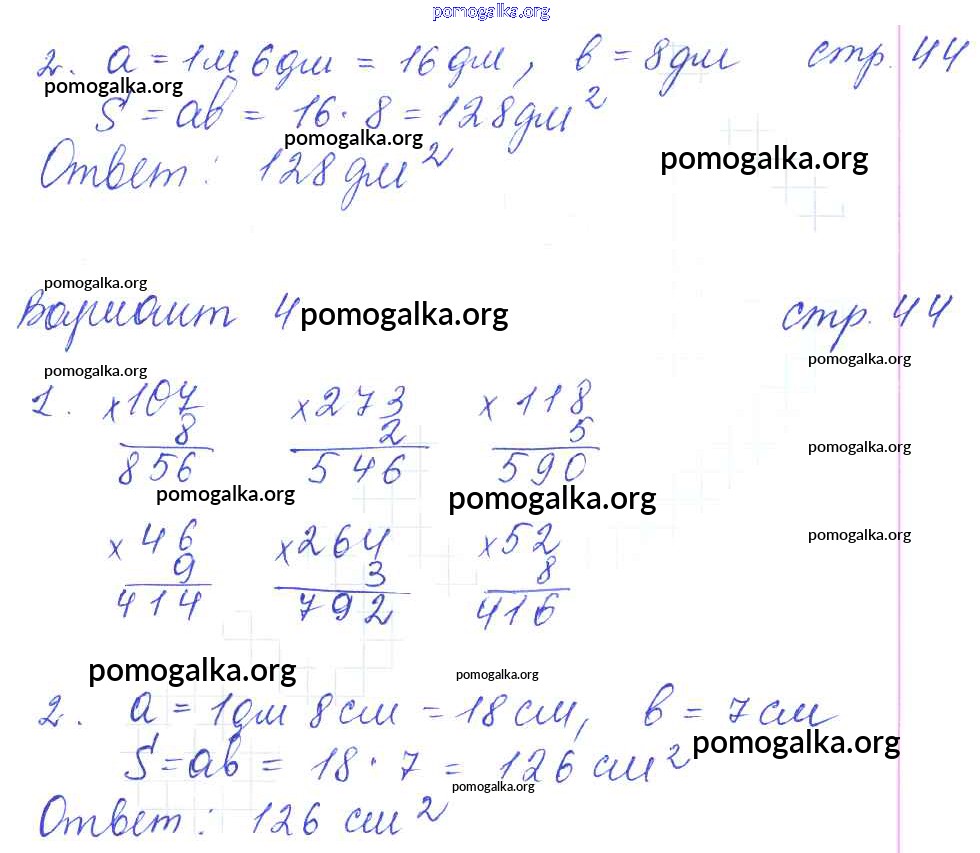 pomogalka.org
2. a = 1м 6дм = 16 дм, b = 8дм стр. 44
pomogalka.org
S = ab = 16 · 8 = 128дм²
pomogalka.org
Ответ: 128 дм² pomogalka.org
pomogalka.org
Вариант 4 pomogalka.org стр. 44
pomogalka.org pomogalka.org
1. ×107 ×273 ×118
8 2 5 pomogalka.org
856 546 590
pomogalka.org pomogalka.org
×46 ×264 ×52 pomogalka.org
9 3 8
414 792 416
pomogalka.org pomogalka.org
2. a = 1дм 8см = 18 см, b = 7 см
pomogalka.org
S = ab = 18 · 7 = 126 см²
pomogalka.org
Ответ: 126 см²